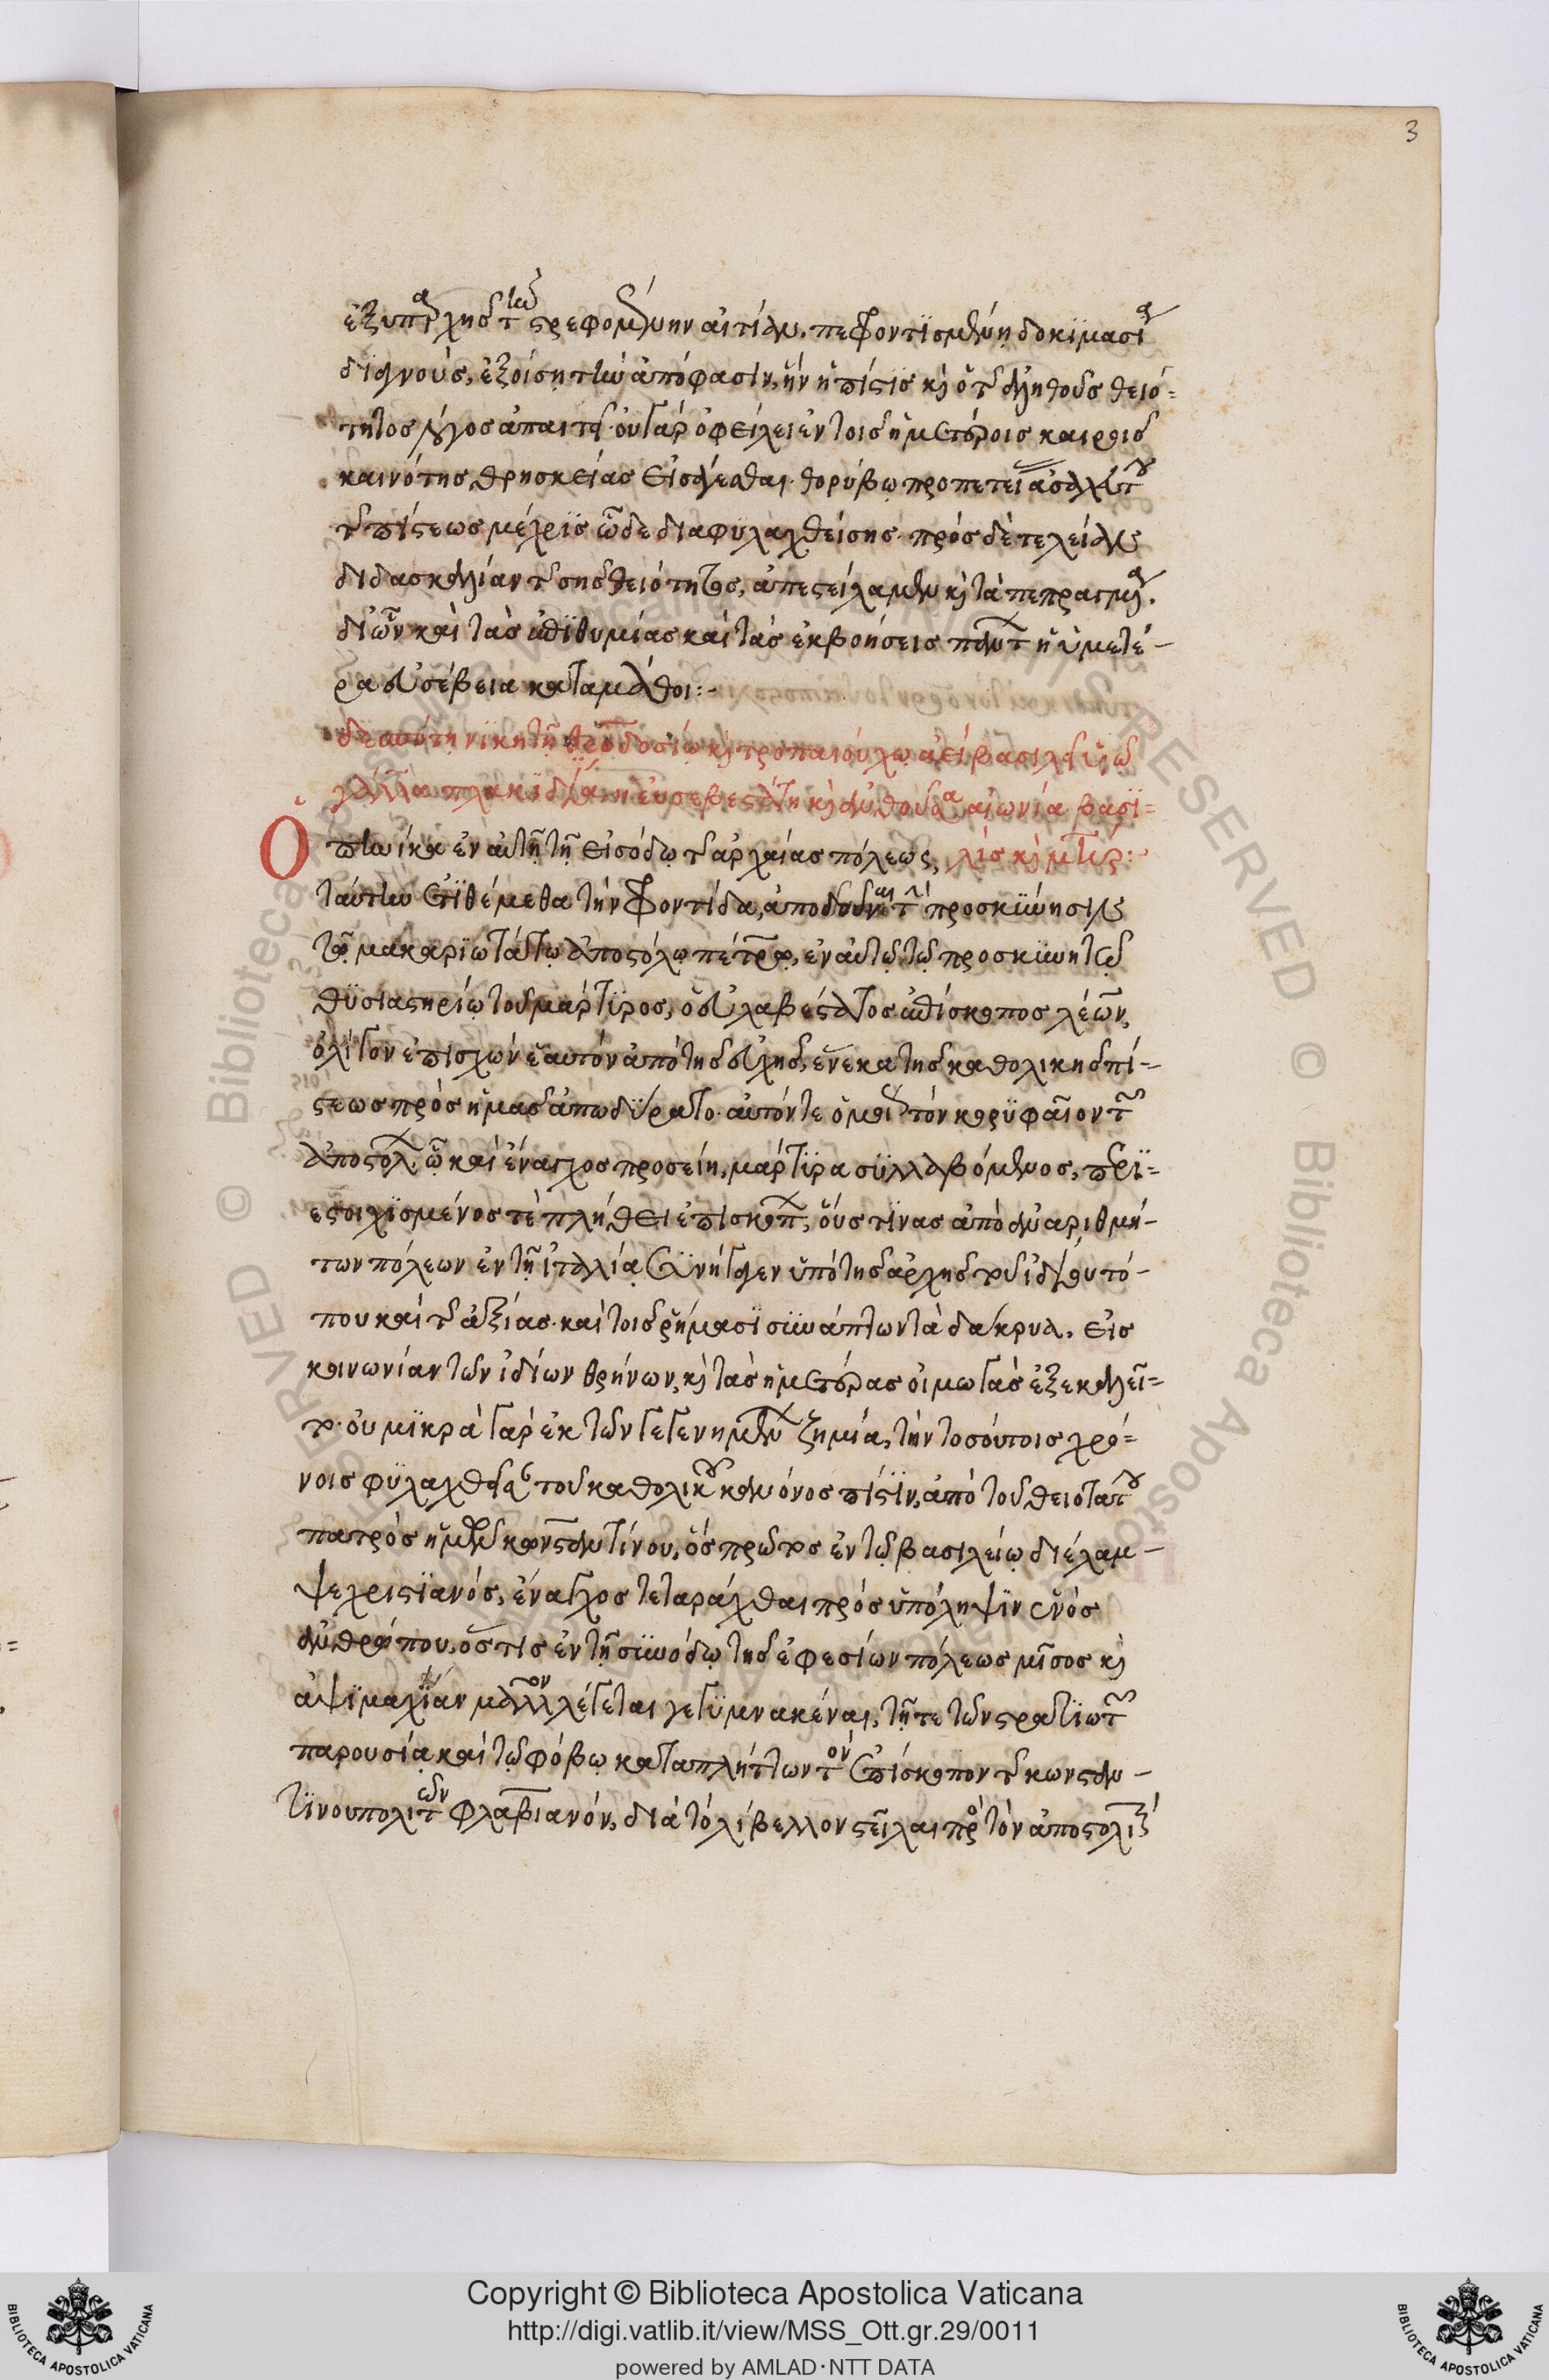 3
ἐξ ὑπαρχῆς τὴν στρεφομένην αἰτίαν. πεφροντισμένῃ δοκιμασίᾳ
διαγνούς, ἐξοίσῃ τὴν ἀπόφασιν, ἣν ἡ πίστις κὶ ὁ τῆς ἀληθοῦς θειό=
τητος λόγος ἀπαιτεῖ· οὐ γὰρ ὀφείλει ἐν τοῖς ἡμετέροις καιροῖς
καινότης θρησκείας εἰσάγεσθαι· θορύβω προπετεία
τῆς πίστεως μέχρις ὧδε διαφυλαχθείσης· πρὸς δὲ τελείαν
διδασκαλίαν τῆς σῆς θειότητος, ἀπεστείλαμεν κὶ τὰ πεπραγμένα.
δι ὧν καὶ τὰς ἐπιθυμίας καὶ τὰς ἐκβοήσεις πάντων ἡ ὑμετέ-
ρα εὐσέβεια καταμάθοι:-
δεσπότῃ νικητῇ θεοδοσίῳ κὶ τροπαιούχω ἀεὶ βασιλεῖ υἱῷ
γάλλα πλακιδία ἡ εὐσεβεστάτη κὶ αὐγούστα αἰωνία βασι=
Ὁπηνίκα ἐν αὐτῇ τῇ εἰσόδῳ τῆς ἀρχαίας πόλεως, λὶς κὶ μήτηρ:·
ταύτην ἐθέμεθα τὴν φροντίδα, ἀποδοῦναι τὴν προσκύνησιν
τῷ μακαριωτάτῳ ἀποστόλῳ πέτρῳ, ἐν αὐτῷ τῷ προσκυνητῷ
θυσιαστηρίῳ τοῦ μάρτυρος, ὁ εὐλαβέστατος ἐπίσκοπος λέων,
ὀλίγον ἐπισχὼν ἑαυτὸν ἀπὸ τῆς εὐχῆς, ἕνεκα τῆς καθολικῆς πί-
στεως πρὸς ἡμᾶς ἀπωδύρατο· αὐτόν τε ὁμοίως τὸν κορυφαῖον τῶν
ἀποστόλων, ᾧ καὶ ἔναγχος προσείη, μάρτυρα συλλαβόμενος, περι=
εστοιχισμένος τὲ πλήθει ἐπισκόπων, οὕς τινας ἀπὸ ἀναριθμή-
των πόλεων ἐν τῇ ἰταλίᾳ συνήγαγεν ὑπὸ τῆς ἀρχῆς τοῦ ἰδίου τό-
που καὶ τῆς ἀξίας· καὶ τοῖς ῥήμασι συνάπτων τὰ δάκρυα. εἰς
κοινωνίαν τῶν ἰδίων θρήνων, κὶ τὰς ἡμετέρας οἰμωγὰς ἐξεκαλεῖ=
το· οὐ μικρὰ γὰρ ἐκ τῶν γεγενημένων ζημία, τὴν τοσούτοις χρό=
νοις φυλαχθεῖσαν τοῦ καθολικοῦ κανόνος πίστιν, ἀπὸ τοῦ θειοτάτου
πατρὸς ἡμῶν κωνσταντίνου, ὃς πρῶτος ἐν τῷ βασιλείῳ διέλαμ-
ψε χριστιανός, ἔναγχος τεταράχθαι πρὸς ὑπόληψιν ἑνὸς
ἀνθρώπου, ὅστις ἐν τῇ συνόδῳ τῆς ἐφεσίων πόλεως μῖσος κὶ
ἁψιμαχίαν μᾶλλον λέγεται γεγυμνακέναι, τῇ τε τῶν στρατιωτῶν
παρουσίᾳ καὶ τῷ φόβῳ καταπλήττων τὸν ἐπίσκοπον τῆς κωνσταν-
τινουπολιτῶν φλαβιανόν, διὰ τὸ λίβελλον στεῖλαι πρὸς τὸν ἀποστολικὸν
Copyright © Biblioteca Apostolica Vaticana
http://digi.vatlib.it/view/MSS_Ott.gr.29/0011
powered by AMLAD·NTT DATA